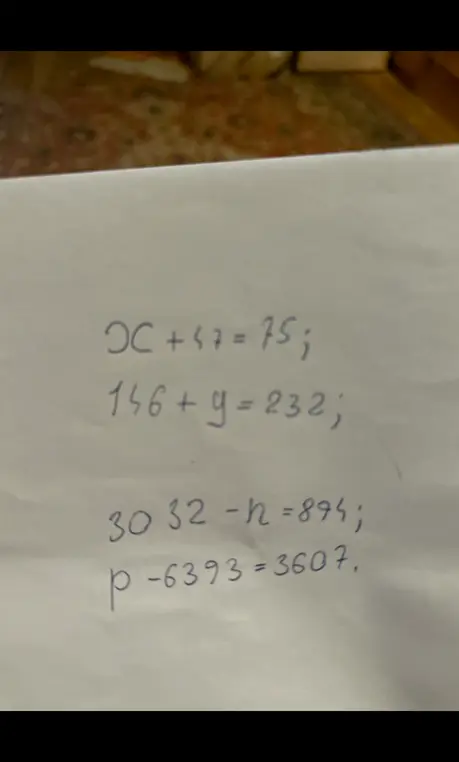 x + 47 = 75;
146 + y = 232;
3032 - n = 894;
p - 6393 = 3607.